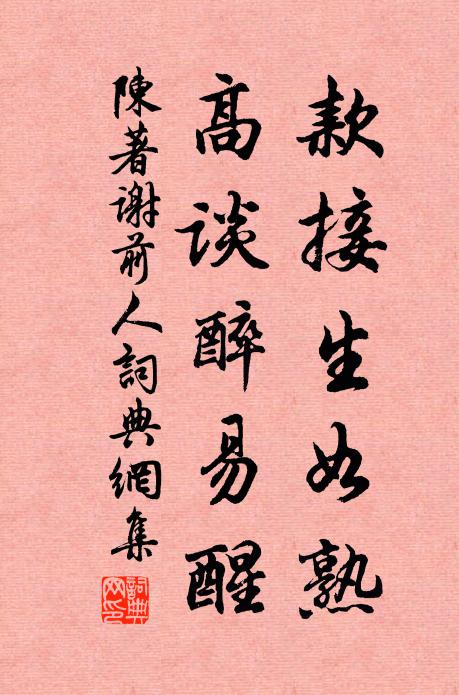 款接生如熟
高談醉易醒
陳著謝前人詞典網集
詞典網印